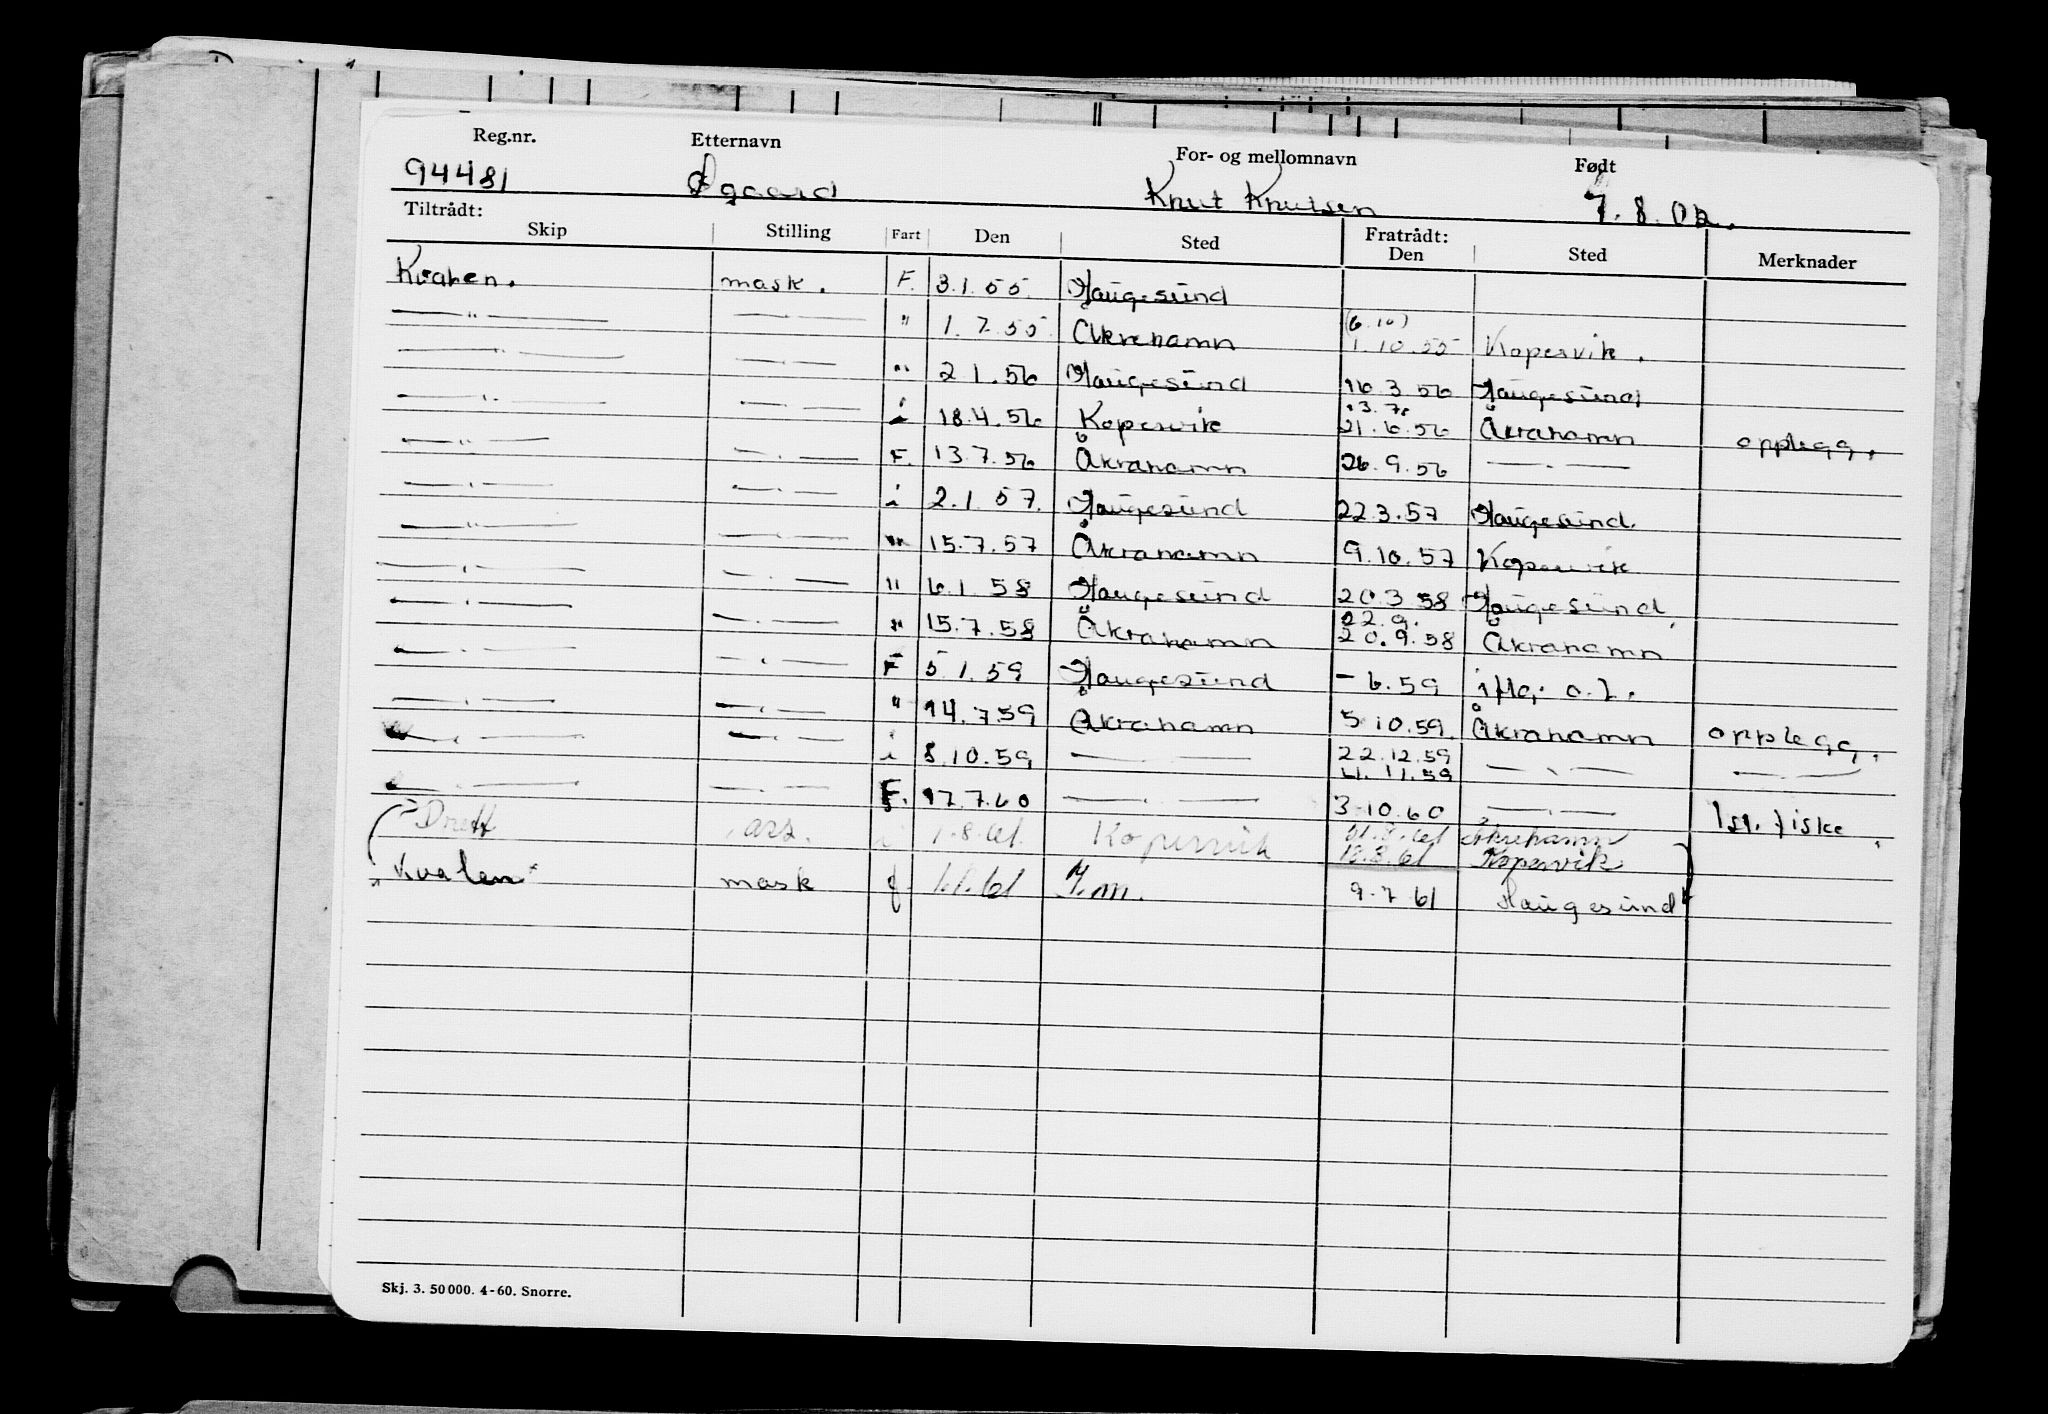 Reg.nr. Etternavn For- og mellomnavn Født
94481 Øgaard Knut Knutsen 7.8.02.
Tiltrådt: Fratrådt:
Skip Stilling Fart Den Sted Den Sted Merknader
Kvalen. mask. F. 3.1.55. Haugesund
—"— —.— " 1.7.55. Åkrehamn (6.10) 1.10.55 Kopervik.
—"— —.— " 2 1.56 Haugesund 16.3.56 Haugesund
—"— —.— i 18.4.56 Kopervik 13.7. 21.6.56 Åkrahamn opplegg.
—"— —.— F. 13.7.56 Åkrahamn 26.9.56 —.—
—.— —.— i 2.1.57. Haugesund 22.3.57 Haugesund.
—"— —.— " 15.7.57 Åkrahamn 9.10.57 Kopervik
—.— —.— " 6.1.58 Haugesund 20.3 58 Haugesund.
—.— —.— " 15.7.58 Åkrahamn 22.9. 20.9.58 Åkrahamn
—.— —.— F 5.1.59 Haugesund - 6.59 iflg. o.l.
—.— —.— " 14.7.59 Åkrahamn 5 10.59. Åkrahamn opplegg.
—.— —.— i 8.10.59 —.— 22.12.59 11.11.59 —.— —.—
—.— —.— F. 17.7.60 —.— 3-10.60 —.— Isl. fiske.
Drett ass. i 1.8.61. Kopervik 31.8.61 Åkrehamn
18.3.61 Kopervik
Kvalen mask f 6.1.61 H.m. 9.7 61 Haugesund
Skj. 3. 50000. 4-60. Snorre.